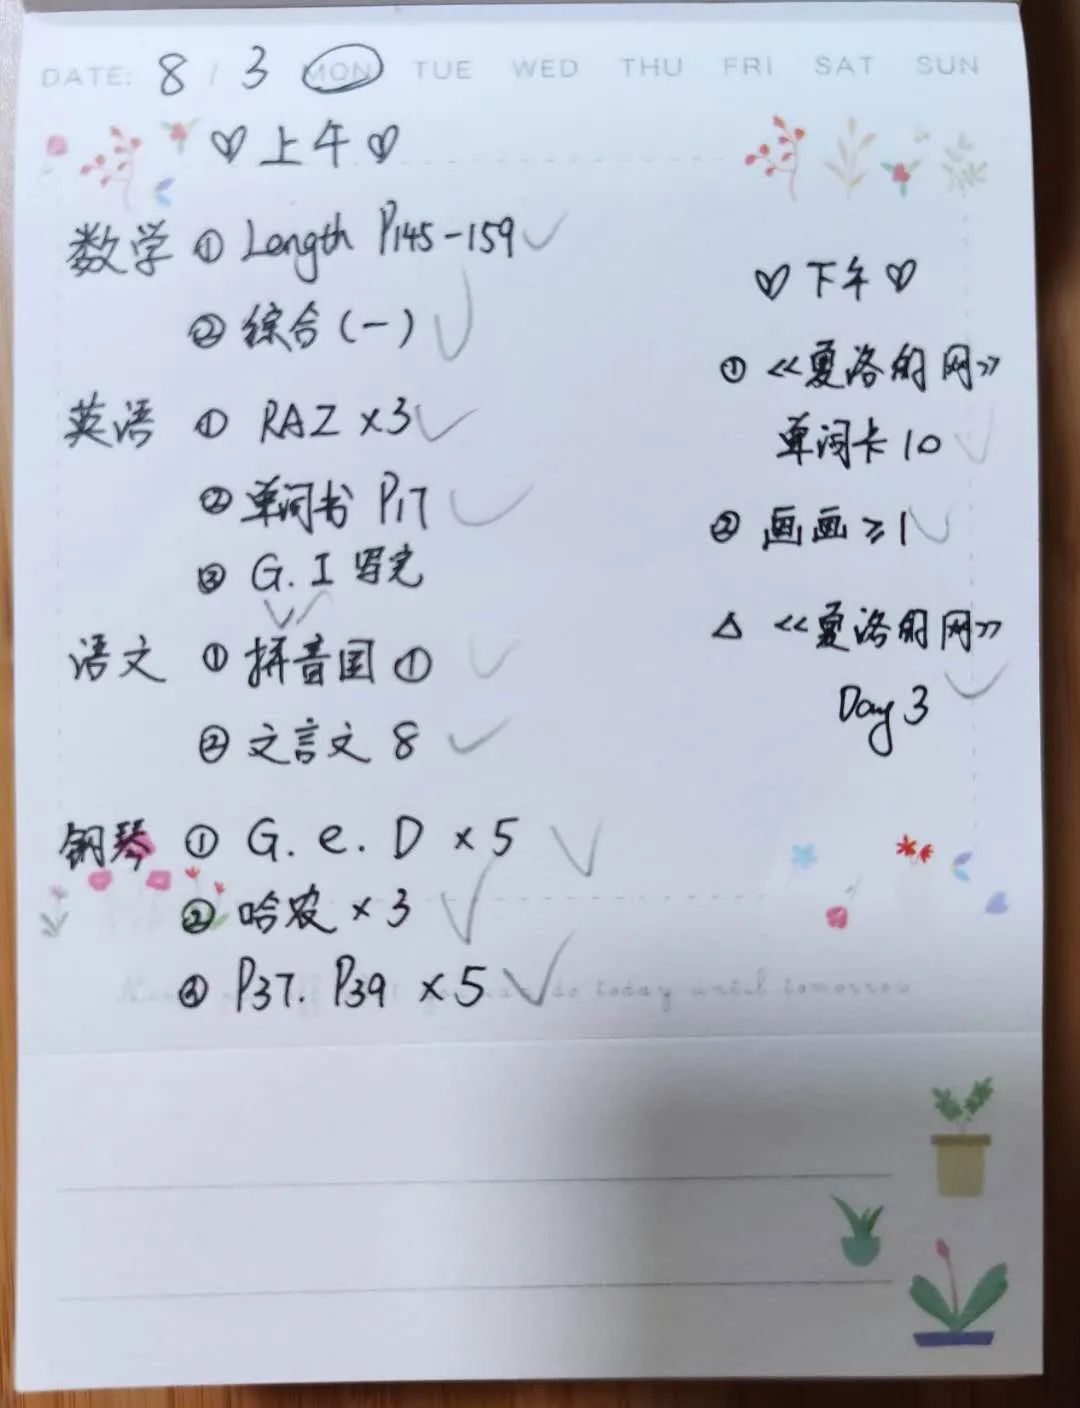 DATE: 8 / 3 MON TUE WED THU FRI SAT SUN
♡ 上午 ♡
数学 ① Length P145-159 ✓
② 综合(一) ✓
英语 ① RAZ ×3 ✓
② 单词书 P17 ✓
③ G. I 写完 ✓✓
语文 ① 拼音国 ① ✓
② 文言文 8 ✓
钢琴 ① G. e. D ×5 ✓
② 哈农 ×3 ✓
③ P37. P39 ×5 ✓
♡ 下午 ♡
① 《夏洛的网》
单词卡 10 ✓
② 画画 ≥1 ✓
△ 《夏洛的网》
Day 3 ✓
do today until tomorrow